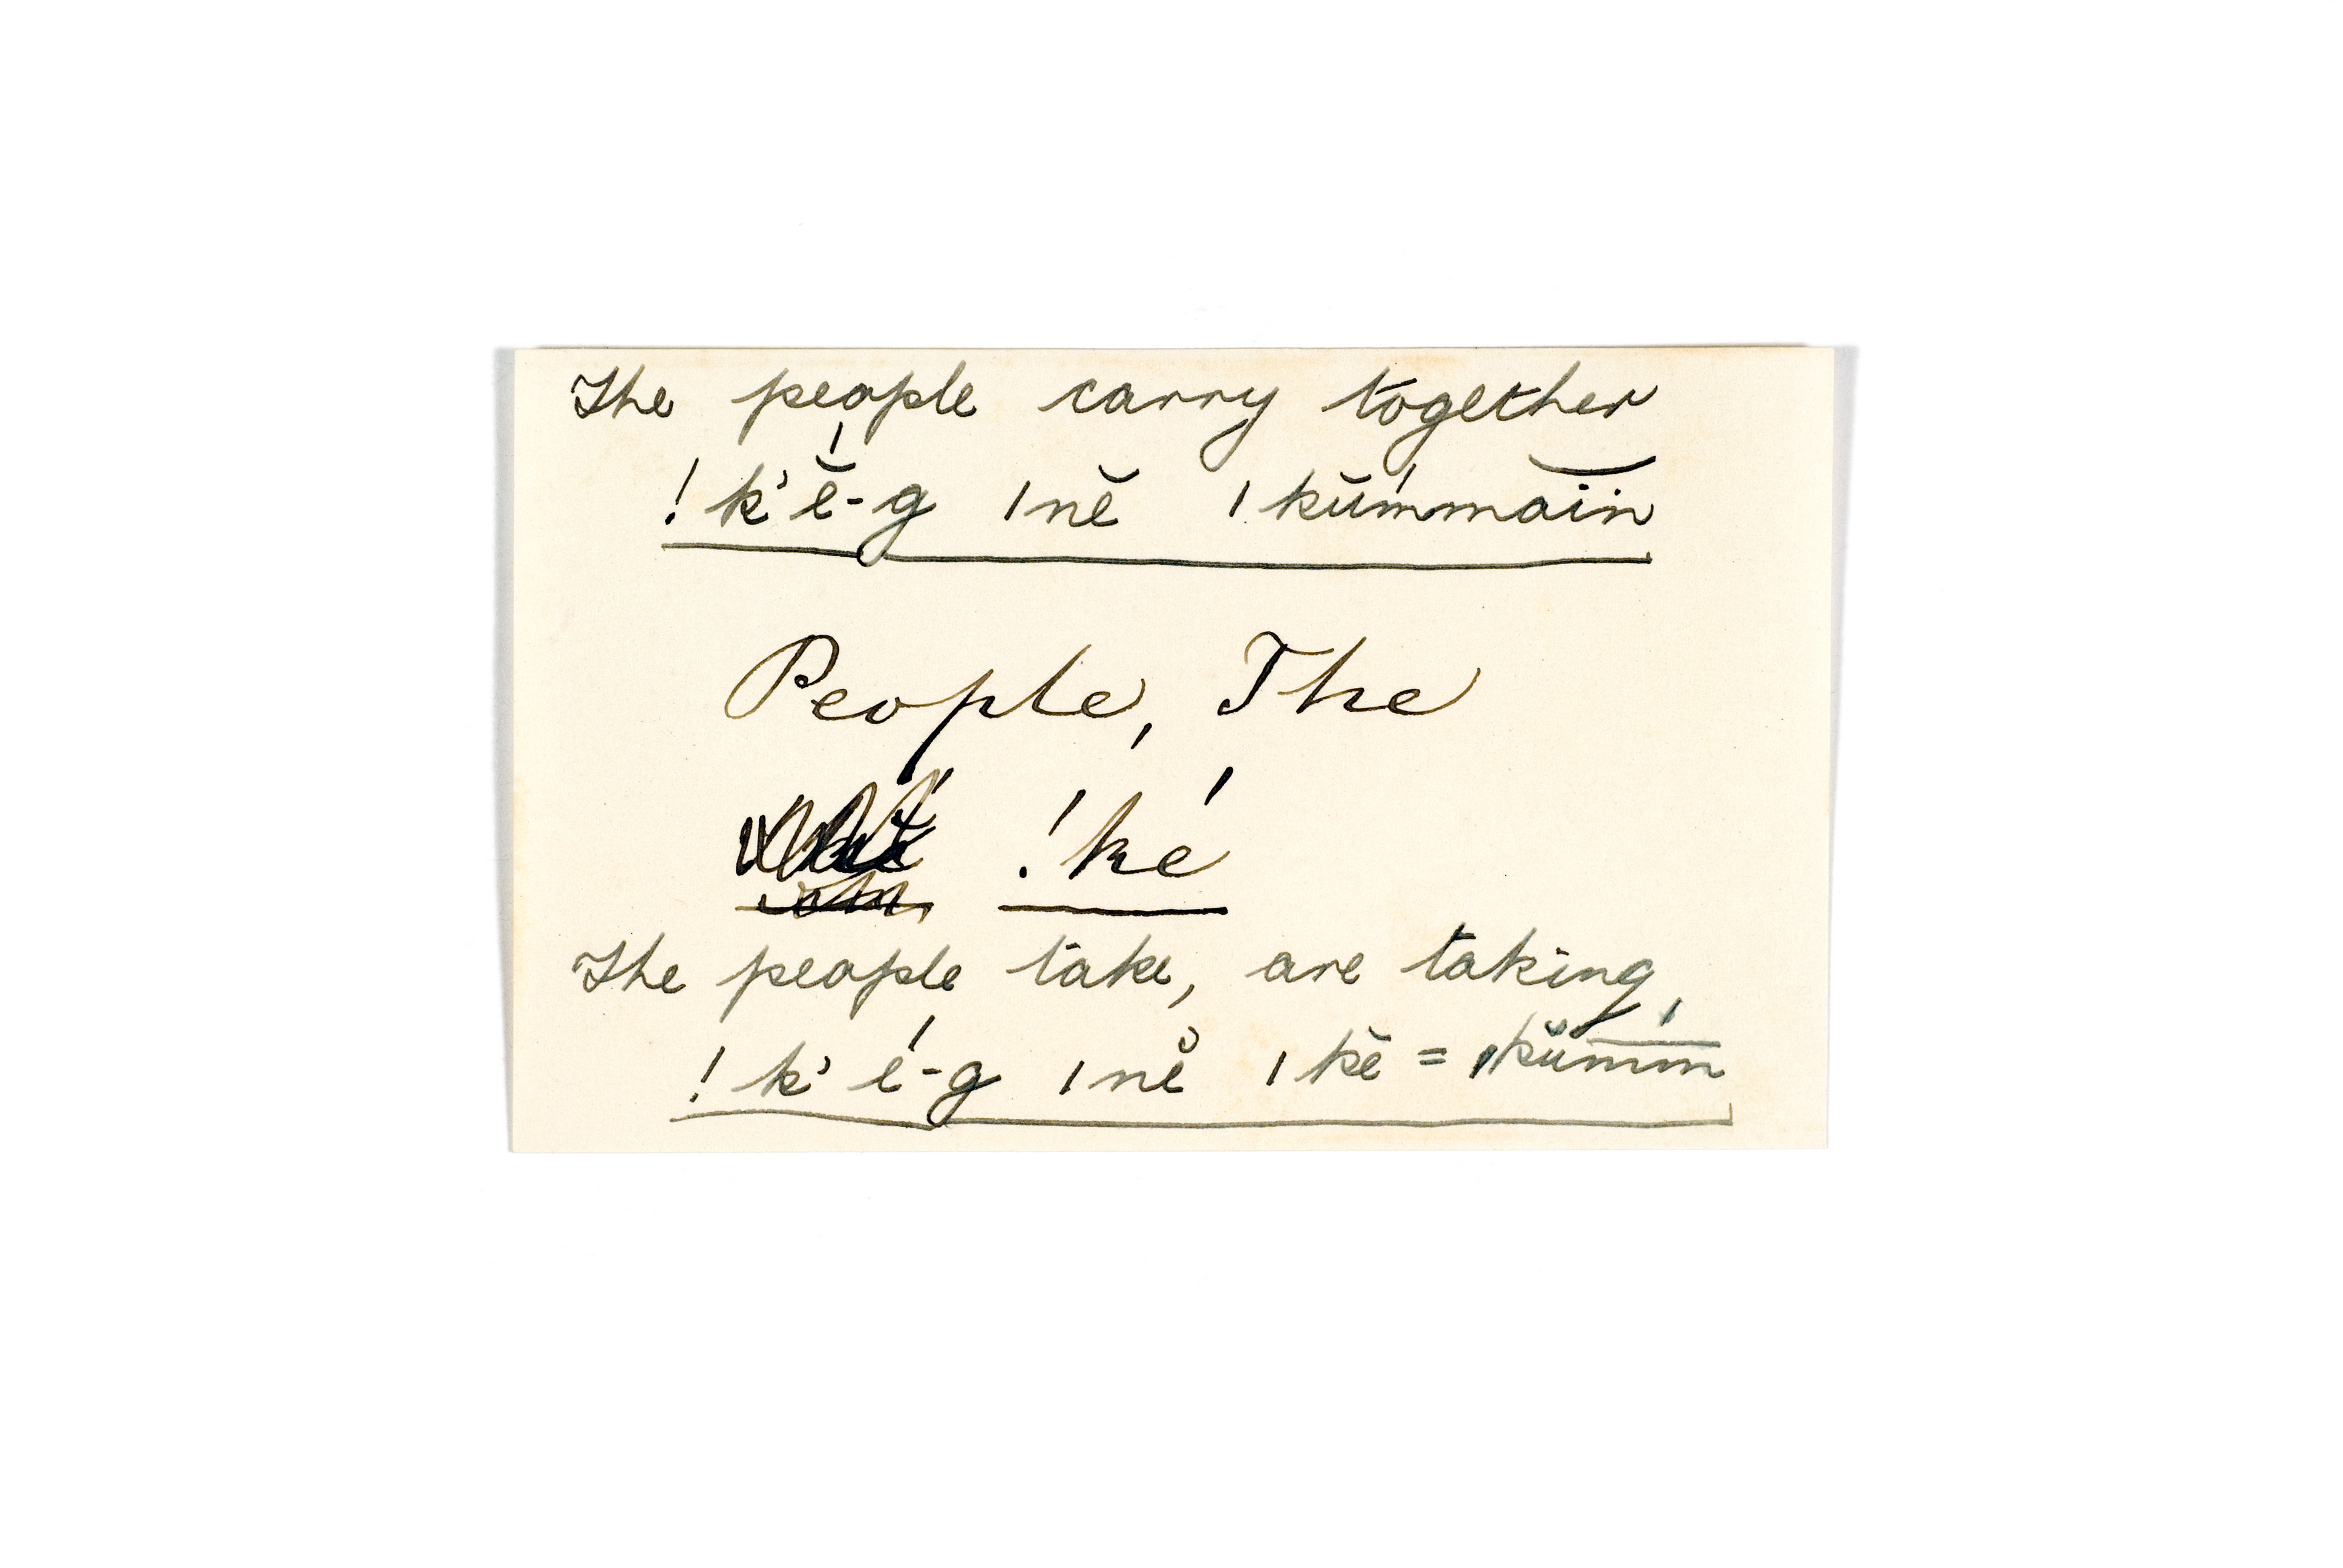 The people carry together
!k'ĕ́-g ǀnĕ ǀkŭ́mmăĭn
People, The
!ké
The people take, are taking,
!k'é-g ǀnĕ̊ ǀkĕ = ǀkŭm̄m̄́